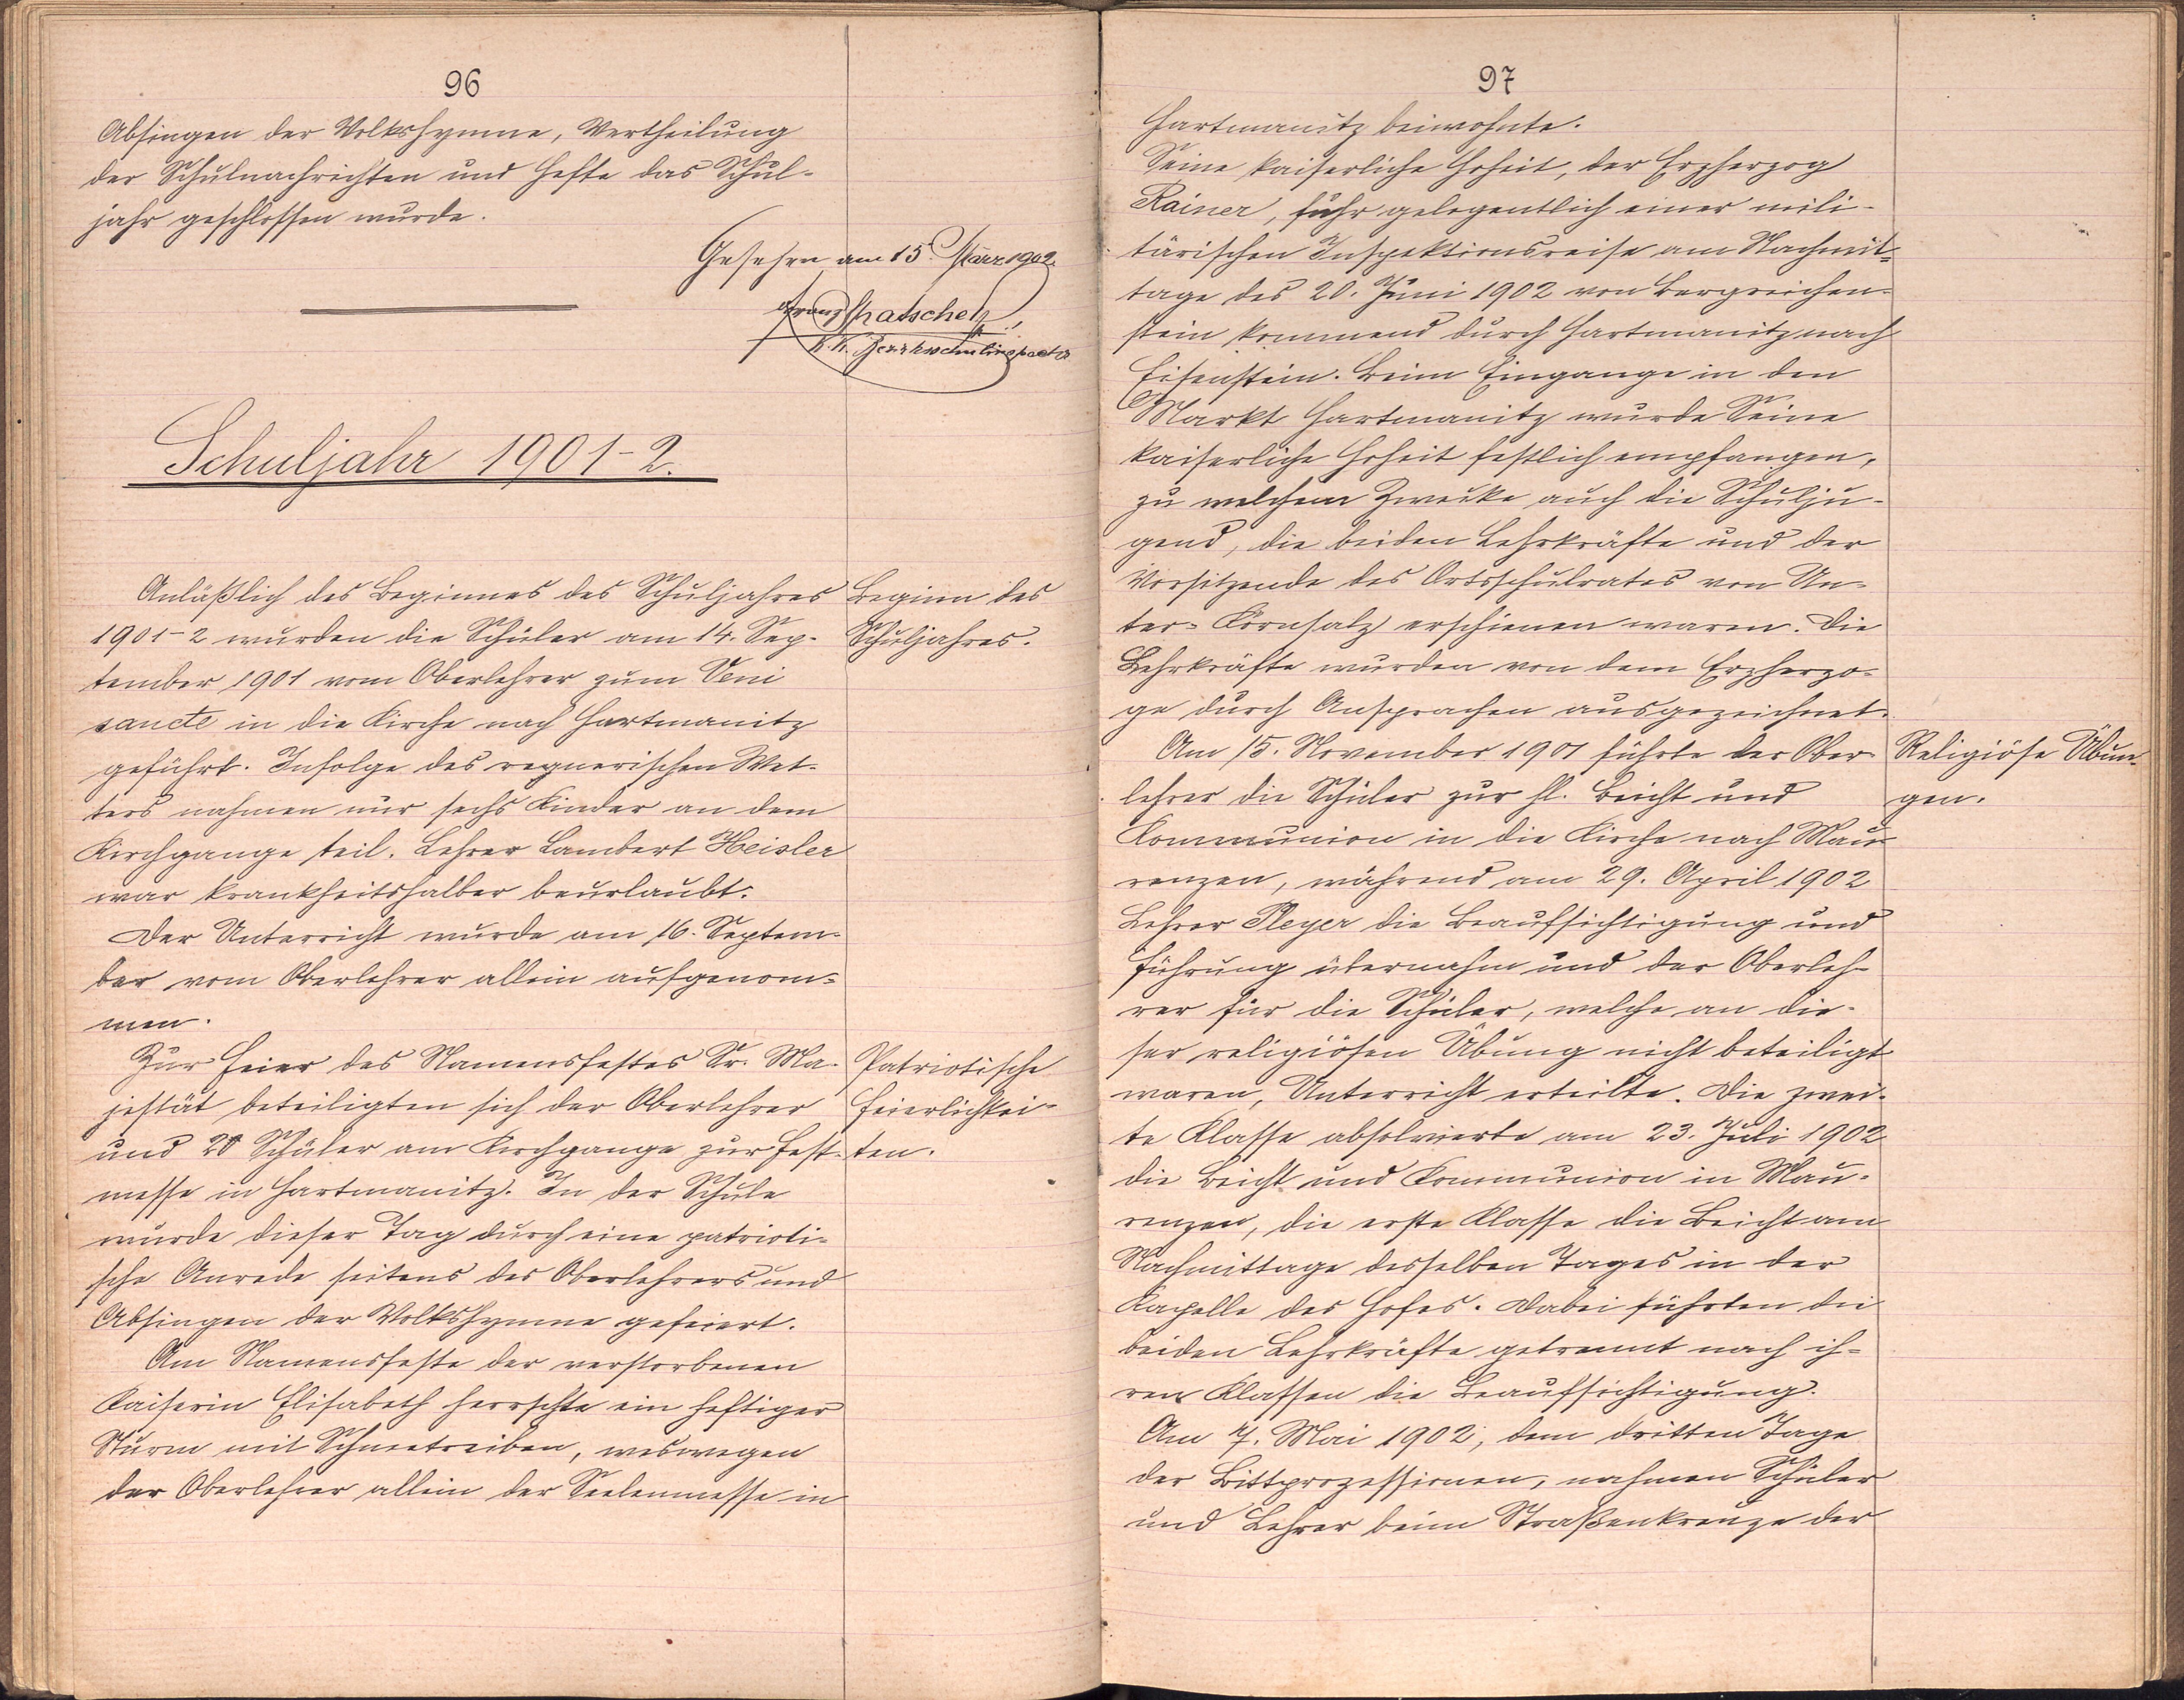 96
Absingen der Volkshymne, Vertheilung
der Schulnachrichten und Hefte das Schul-
jahr geschlossen wurde.
Gesehen am 15. März 1902.
Franz
k. k. Bezirksschulinspector
Schuljahr 1901-2.
Anläßlich des Beginnes des Schuljahres
1901-2 wurden die Schüler am 14. Sep-
tember 1901 vom Oberlehrer zum Veni
sancte in die Kirche nach Hartmanitz
geführt. Infolge des regnerischen Wet-
ters nahmen nur sechs Kinder an dem
Kirchgange teil. Lehrer Lambert Heisler
war krankheitshalber beurlaubt.
Der Unterricht wurde am 16. Septem-
ber vom Oberlehrer allein aufgenom-
men.
Zur Feier des Namensfestes Sr. Ma-
jestät beteiligten sich der Oberlehrer
und 20 Schüler am Kirchgange zur Fest-
messe in Hartmanitz. In der Schule
wurde dieser Tag durch eine patrioti-
sche Anrede seitens des Oberlehrers und
Absingen der Volkshymne gefeiert.
Am Namensfeste der verstorbenen
Kaiserin Elisabeth herrschte ein heftiger
Sturm mit Schneetreiben, weswegen
der Oberlehrer allein der Seelenmesse in
Beginn des
Schuljahres.
Patriotische
Feierlichkei-
ten.
97
Hartmanitz beiwohnte.
Seine kaiserliche Hoheit, der Erzherzog
Rainer, fuhr gelegentlich einer mili-
tärischen Inspektionsreise am Nachmit-
tage des 20. Juni 1902 von Bergreichen-
stein kommend durch Hartmanitz nach
Eisenstein. Beim Eingange in den
Markt Hartmanitz wurde Seine
kaiserliche Hoheit festlich empfangen,
zu welchem Zwecke auch die Schulju-
gend, die beiden Lehrkräfte und der
Vorsitzende des Ortsschulrates von Un-
ter-Körnsalz erschienen waren. Die
Lehrkräfte wurden von dem Erzherzo-
ge durch Ansprachen ausgezeichnet.
Am 15. November 1901 führte der Ober-
lehrer die Schüler zur hl. Beicht und
Kommunion in die Kirche nach Mau-
renzen, während am 29. April 1902
Lehrer Pleyer die Beaufsichtigung und
Führung übernahm und der Oberleh-
rer für die Schüler, welche an die-
ser religiösen Übung nicht beteiligt
waren, Unterricht erteilte. Die zwei-
te Klasse absolvierte am 23. Juli 1902
die Beicht und Kommunion in Mau-
renzen, die erste Klasse die Beicht am
Nachmittage desselben Tages in der
Kapelle des Hofes. Dabei führten die
beiden Lehrkräfte getrennt nach ih-
ren Klassen die Beaufsichtigung.
Am 7. Mai 1902, dem dritten Tage
der Bittprozessionen, nahmen Schüler
und Lehrer beim Straßenkreuze der
Religiöse Übun-
gen.